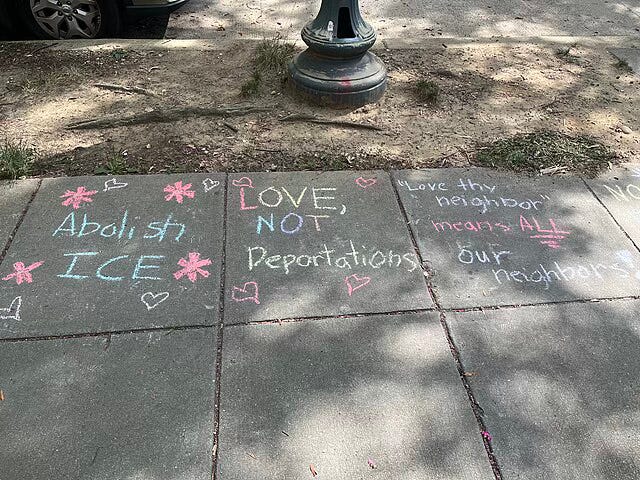 Abolish
ICE
LOVE,
NOT
Deportations
"Love thy
neighbor"
means ALL
our
neighbors
NO